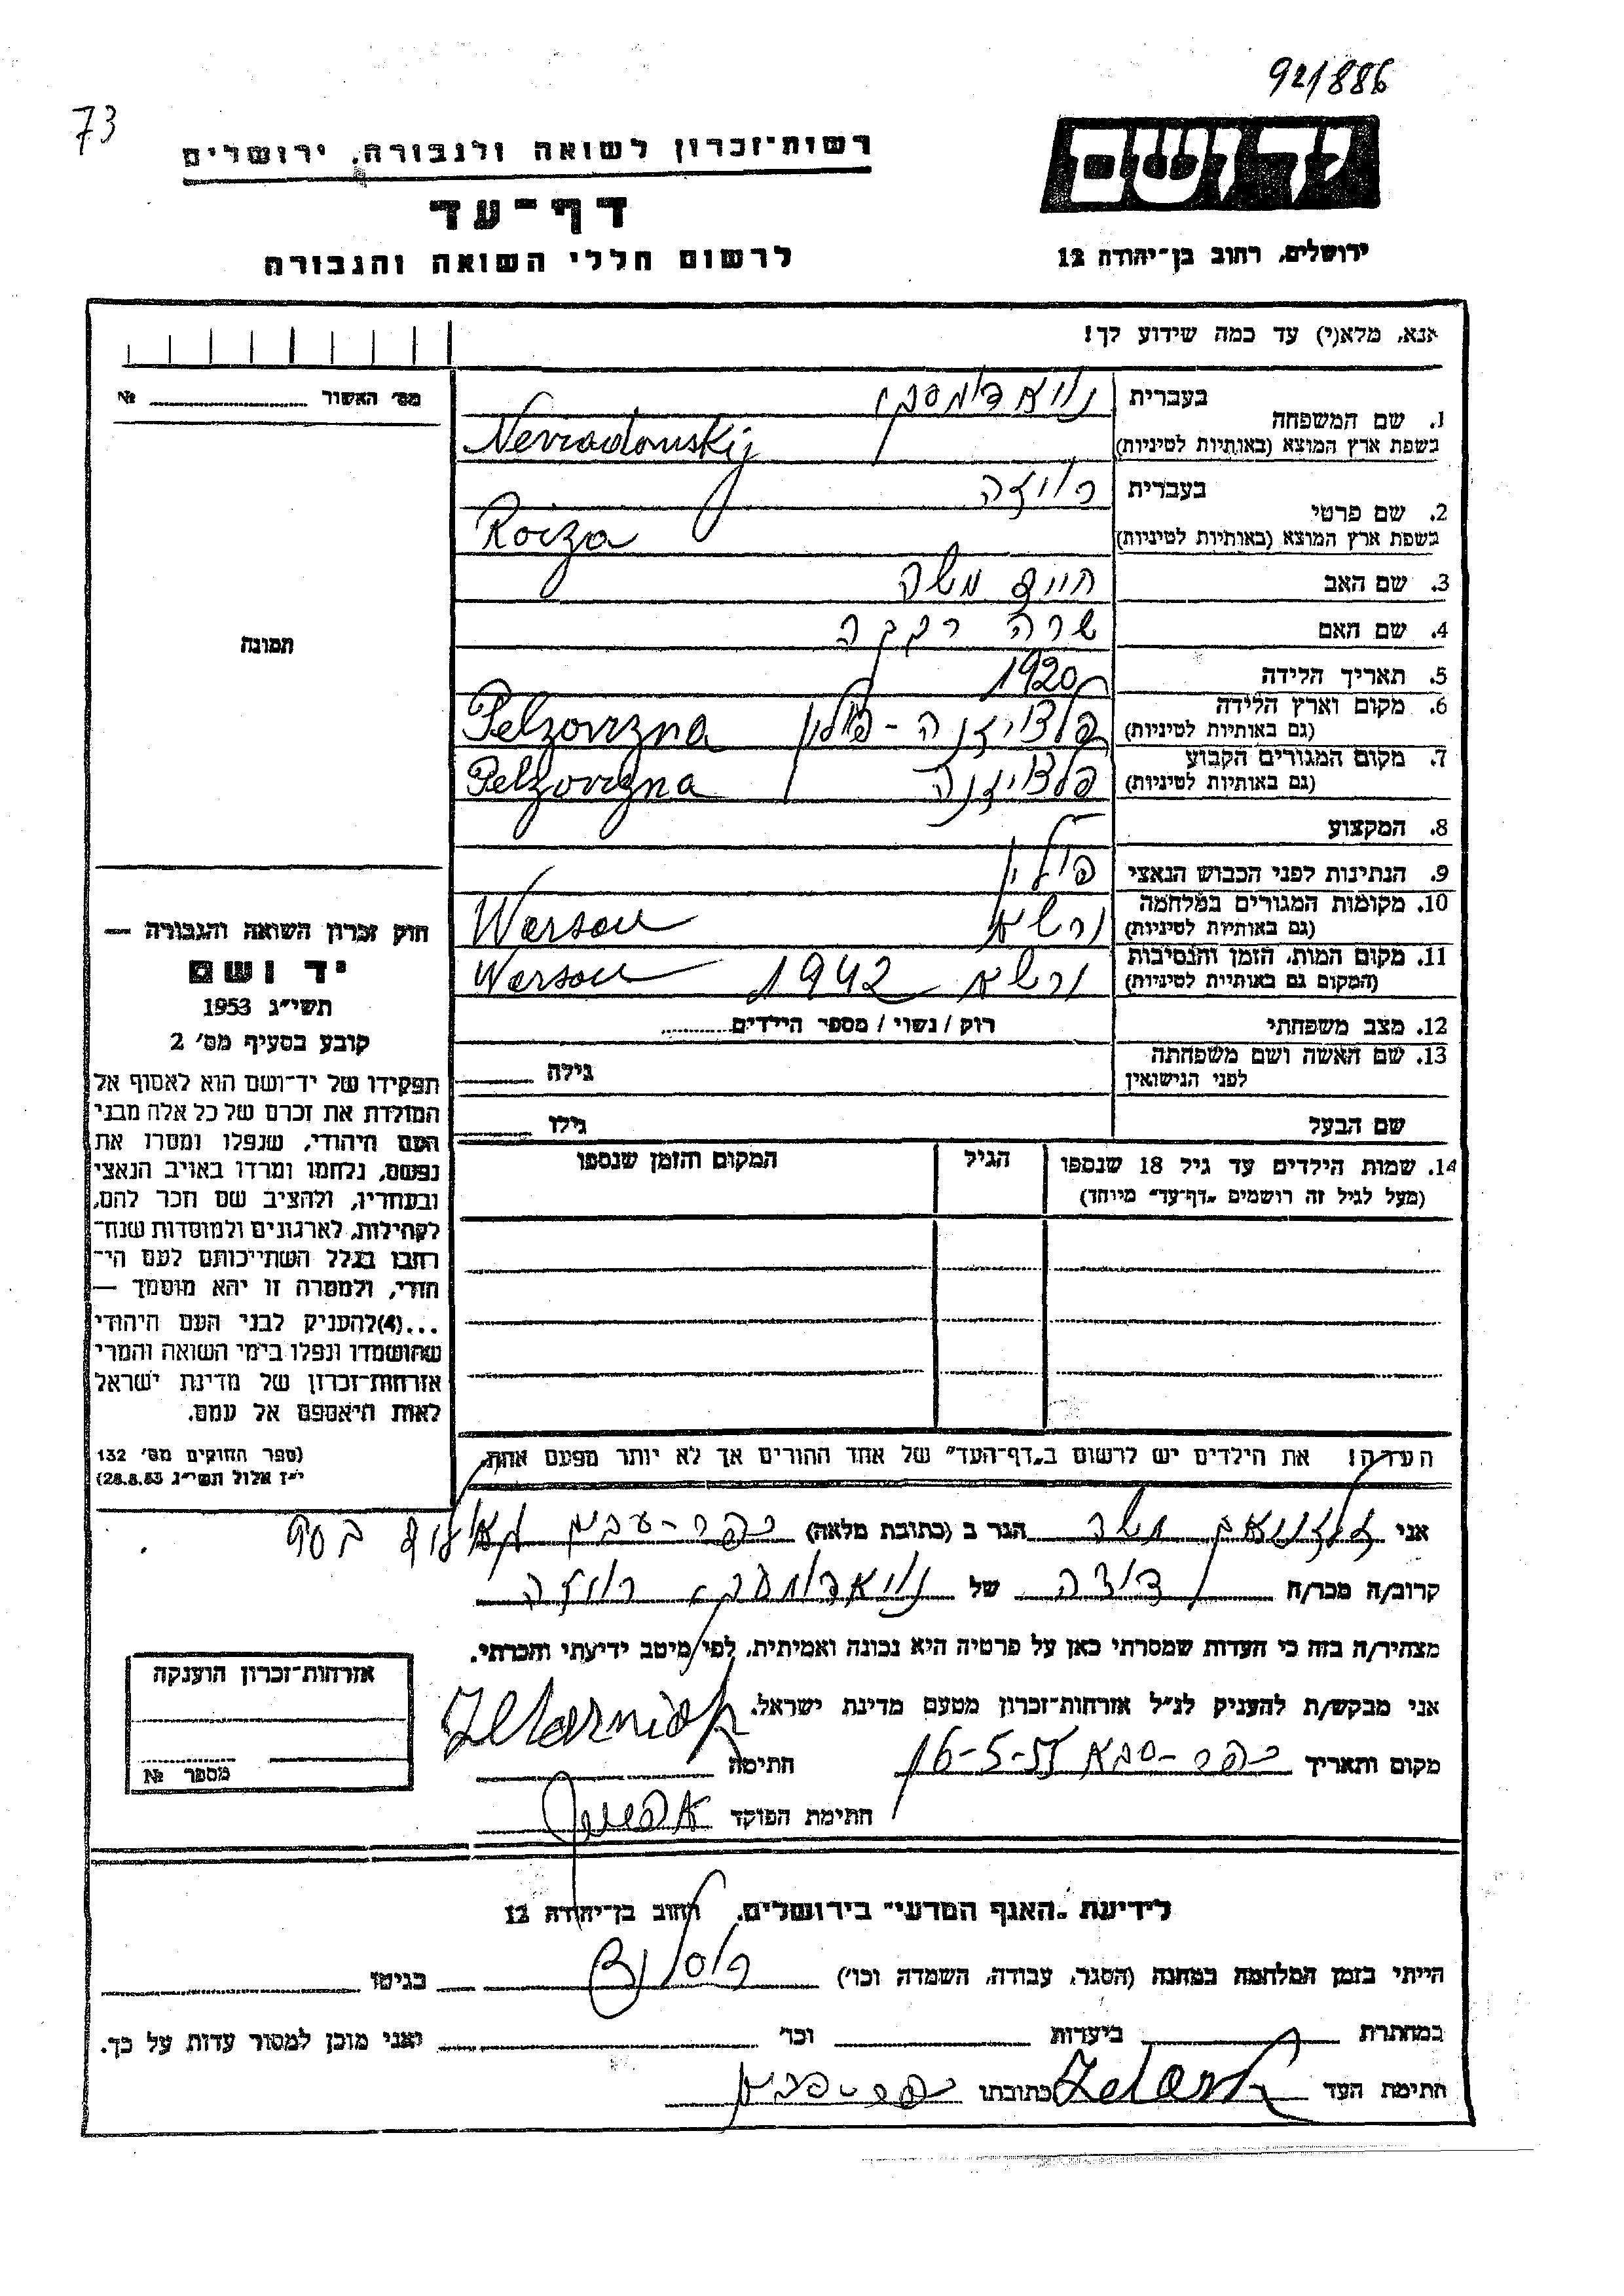 92/886
73
יד ושם
רשות־זכרון לשואה ולגבורה, ירושלים
דף־עד
לרשום חללי השואה והגבורה
ירושלים, רחוב בן־יהודה 12
אנא, מלא(י) עד כמה שידוע לך!
מס׳ האשור № 
1. שם המשפחה
בעברית
בשפת ארץ המוצא (באותיות לטיניות) Nevradomskij
2. שם פרטי
בעברית רויזה
בשפת ארץ המוצא (באותיות לטיניות) Roiza
3. שם האב חיים משה
4. שם האם שרה רבקה
5. תאריך הלידה 1920
6. מקום וארץ הלידה
(גם באותיות לטיניות) פלצויזנה - פולין Pelzovizna
7. מקום המגורים הקבוע
(גם באותיות לטיניות) פלצויזנה Pelzovizna
8. המקצוע
9. הנתינות לפני הכבוש הנאצי פולין
10. מקומות המגורים במלחמה
(גם באותיות לטיניות) ורשא Warsau
11. מקום המות, הזמן והנסיבות
(המקום גם באותיות לטיניות) ורשא 1942 Warsau
12. מצב משפחתי רוק / נשוי / מספר הילדים
13. שם האשה ושם משפחתה
לפני הנישואין גילה
שם הבעל גילו
14. שמות הילדים עד גיל 18 שנספו הגיל המקום והזמן שנספו
(מעל לגיל זה רושמים "דף־עד" מיוחד)
הערה! את הילדים יש לרשום ב"דף־העד" של אחד ההורים אך לא יותר מפעם אחת.
תמונה
חוק זכרון השואה והגבורה —
יד ושם
תשי״ג 1953
קובע בסעיף מס׳ 2
תפקידו של יד־ושם הוא לאסוף אל
המולדת את זכרם של כל אלה מבני
העם היהודי, שנפלו ומסרו את
נפשם, נלחמו ומרדו באויב הנאצי
ובעוזריו, ולהציב שם וזכר להם,
לקהילות, לארגונים ולמוסדות שנח־
רבו בגלל השתייכותם לעם הי־
הודי, ולמטרה זו יהא מוסמך —
...(4)להעניק לבני העם היהודי
שהושמדו ונפלו בימי השואה והמרי
אזרחות־זכרון של מדינת ישראל
לאות היאספם אל עמם.
(ספר החוקים מס׳ 132
י״ז אלול תשי״ג 28.8.53)
אני משה הגר ב (כתובת מלאה) כפר־
קרוב/ה מכר/ה דודה של רויזה
מצהיר/ה בזה כי העדות שמסרתי כאן על פרטיה היא נכונה ואמיתית, לפי מיטב ידיעתי והכרתי.
אני מבקש/ת להעניק לנ״ל אזרחות־זכרון מטעם מדינת ישראל.
מקום ותאריך כפר־סבא 16-5-55 חתימה
חתימת הפוקד
אזרחות־זכרון הוענקה
מספר №
לידיעת "האגף המדעי" בירושלים, רחוב בן־יהודה 12
הייתי בזמן המלחמה במחנה (הסגר, עבודה, השמדה וכו׳) בגיטו
במחתרת ביערות וכו׳ ואני מוכן למסור עדות על כך.
חתימת העד כתובתו כפר־סבא